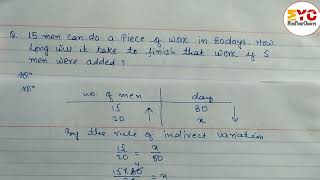 ZYC
Find Your Choices
Q. 15 men can do a piece of work in 80days. How
long will it take to finish that work if 5
men were added ?
no. of men days
15 80
20 x
By the rule of indirect variation
15/20 = x/80
15×80 = x